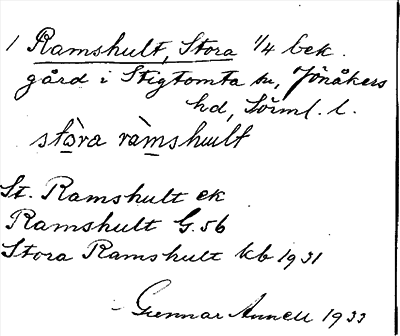 1 Ramshult, Stora 1/4 bek.
gård i Stigtomta sn, Jönåkers
hd, Sörml. l.
stòra ràmshult
St. Ramshult ek
Ramshult G.56
Stora Ramshult kb 1931
Gunnar Annell 1933